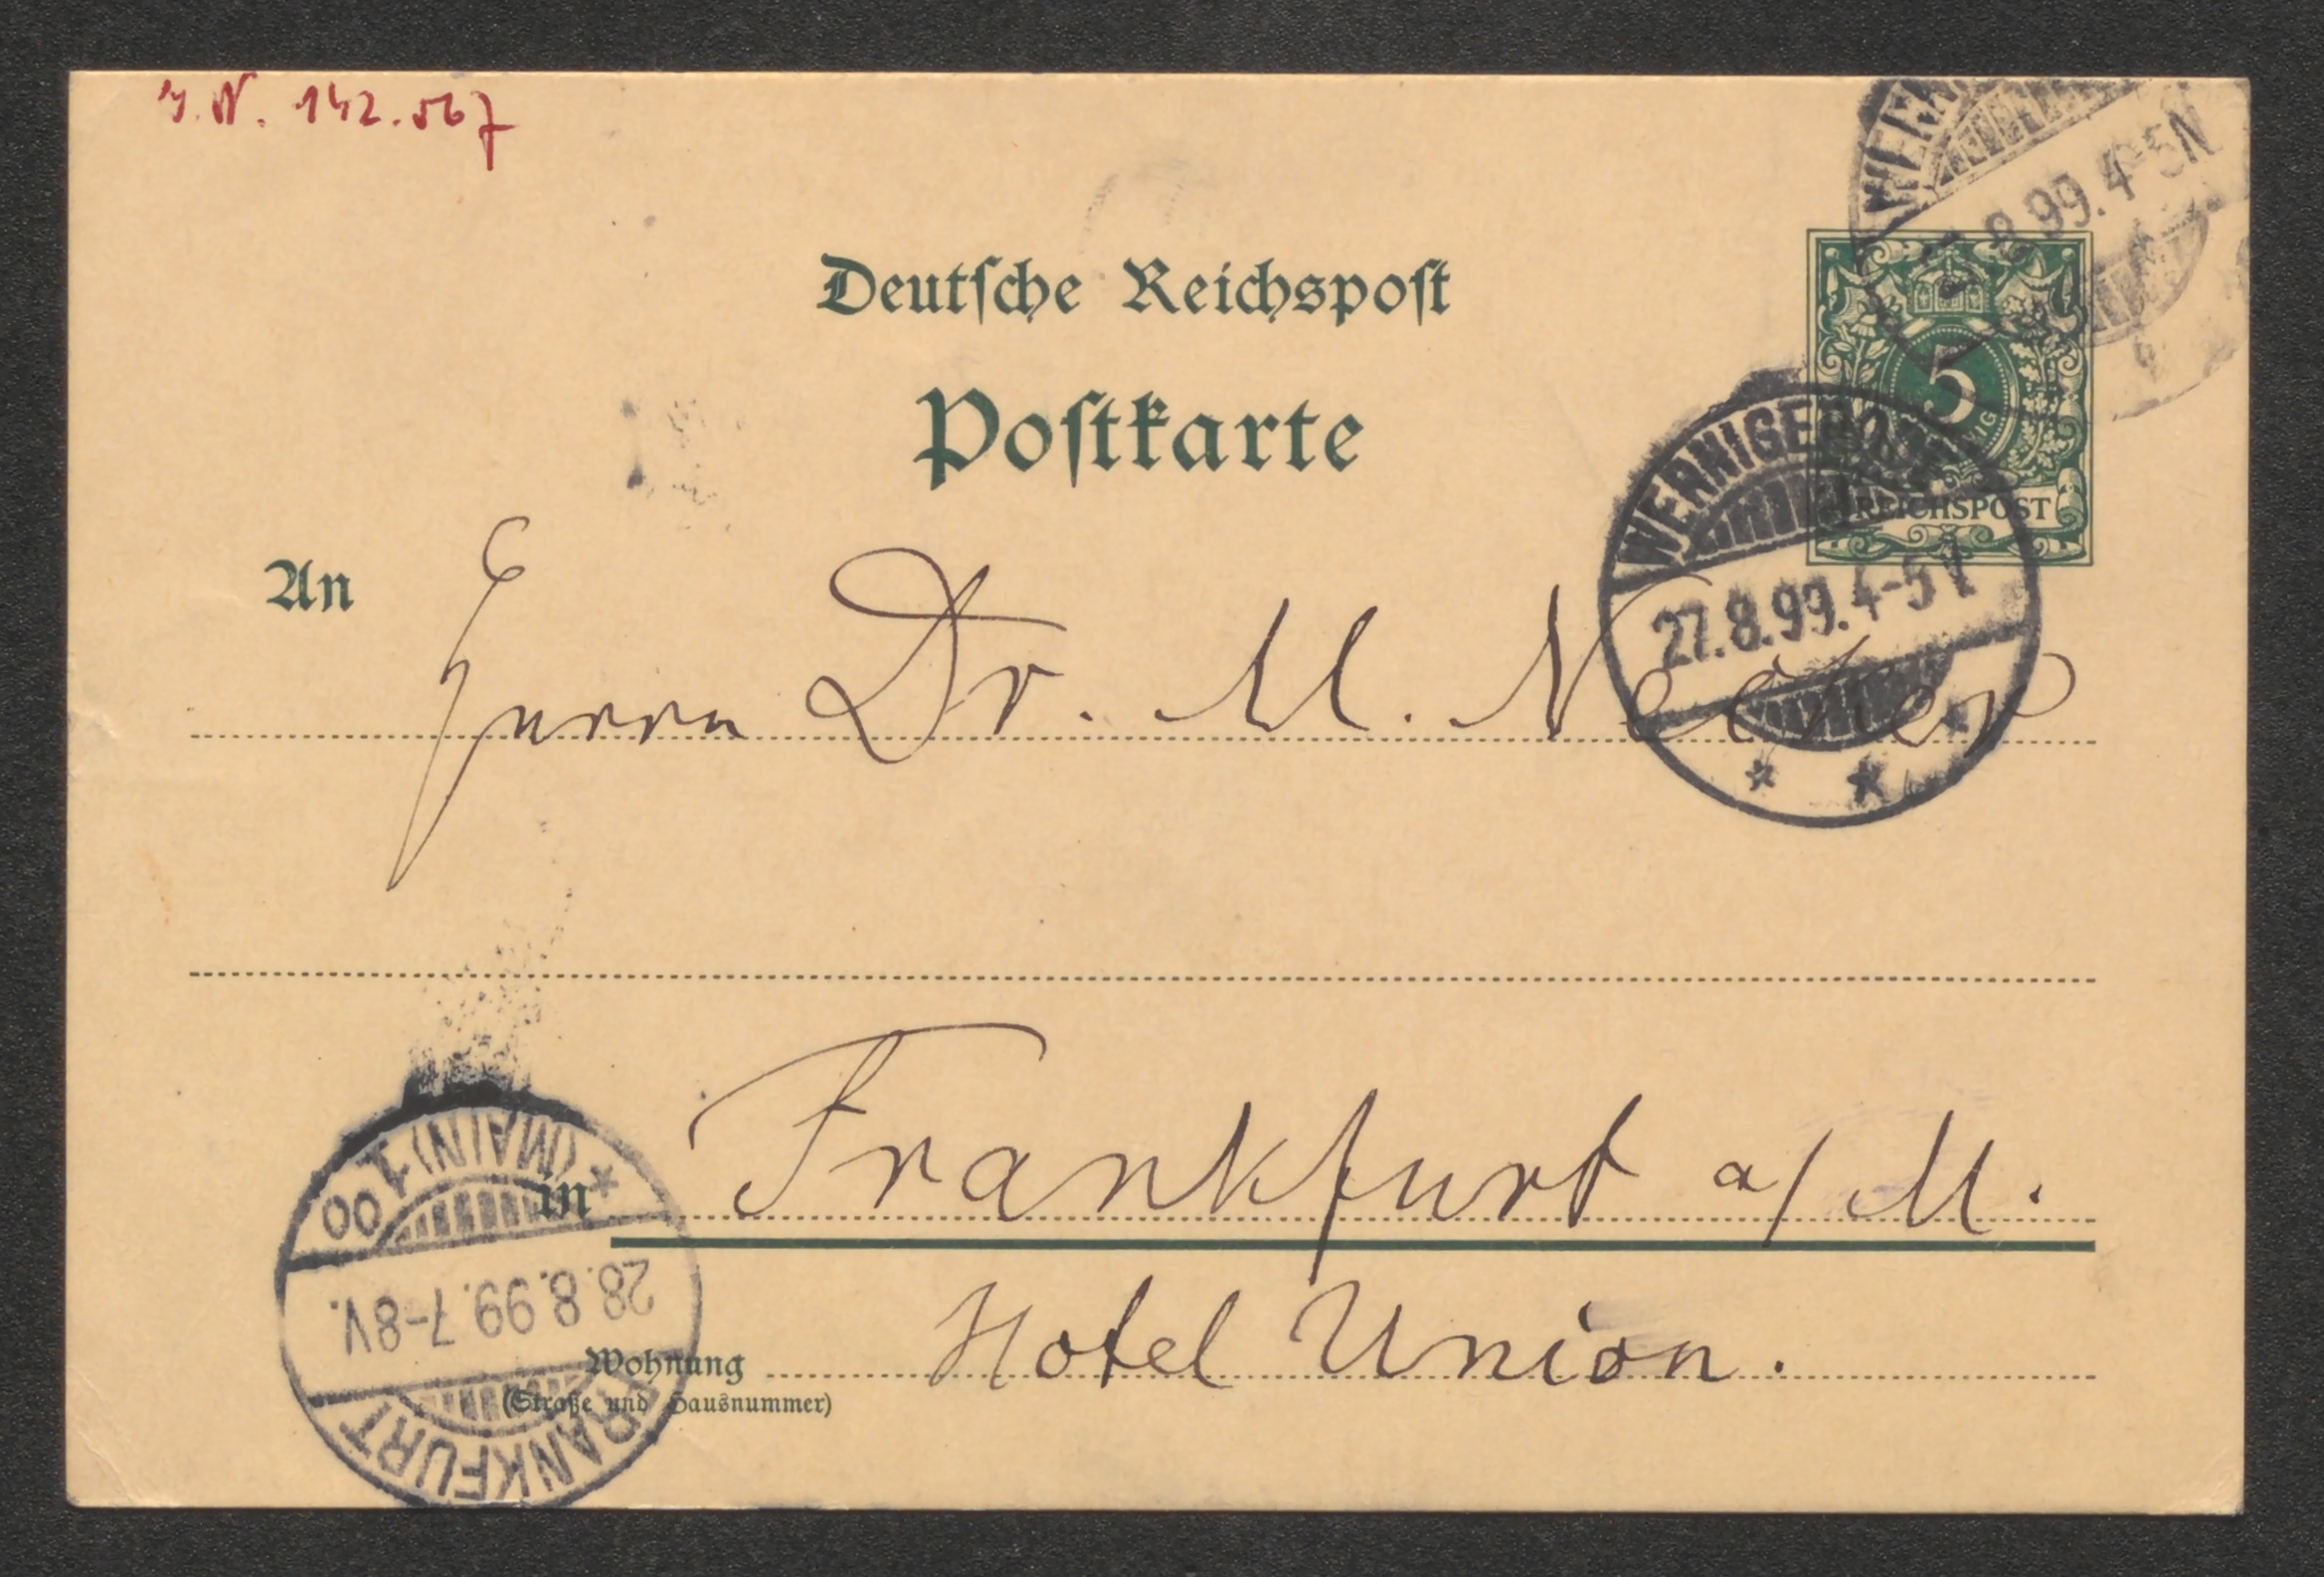 J. N. 142.567
WERN
27.8.99.4-5N
Deutsche Reichspost
Postkarte
5
REICHSPOST
WERNIGERODE
27.8.99.4-5N
An Herrn Dr. M. Necker
in Frankfurt a/M.
Wohnung Hotel Union.
(Straße und Hausnummer)
FRANKFURT
28.8.99.7-8V.
(MAIN) 1 00